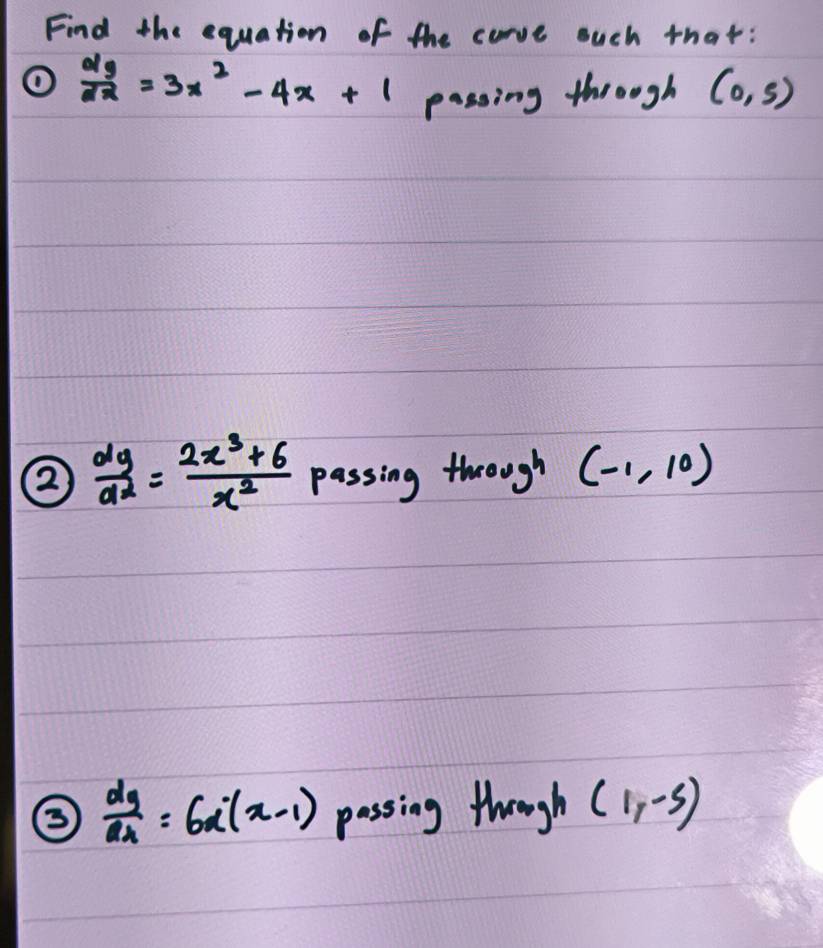 Find the equation of the curve such that:
① dy/dx = 3x² - 4x + 1 passing through (0,5)
② dy/dx = (2x³+6)/x² passing through (-1, 10)
③ dy/dx = 6x(x-1) passing through (1,-5)